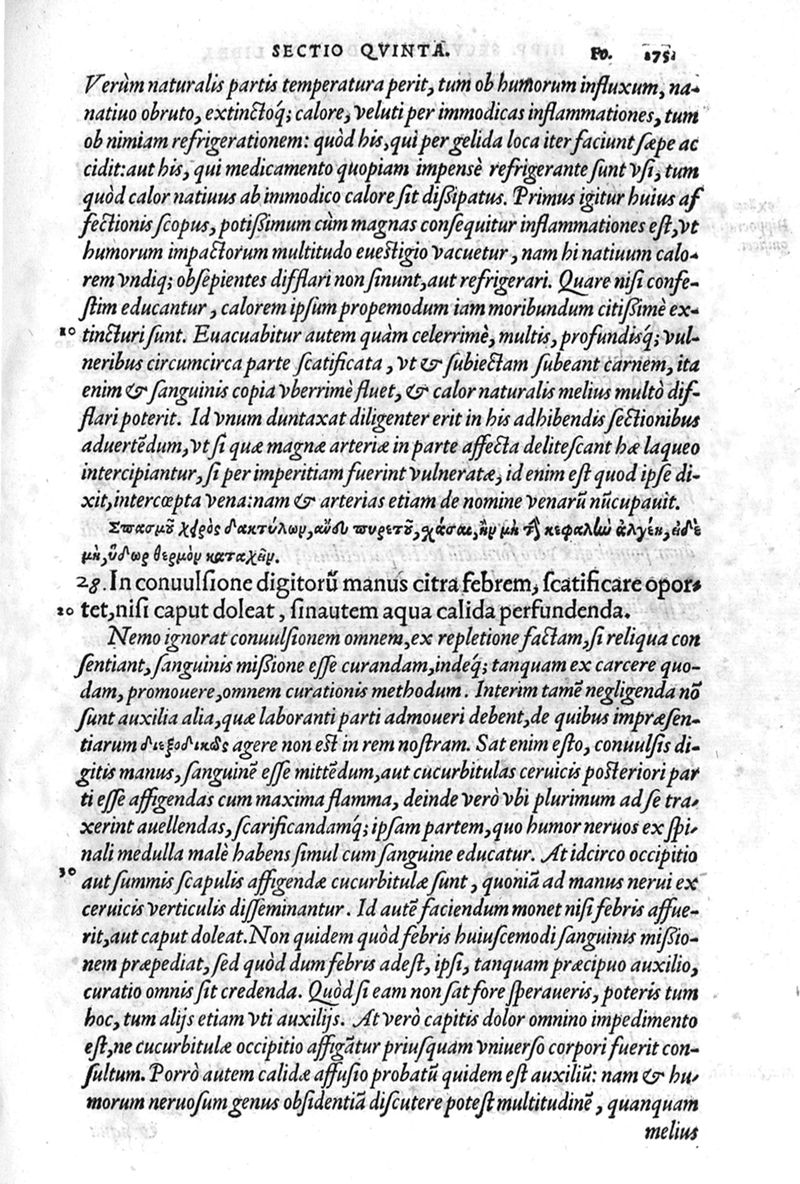 SECTIO QVINTA. Fo. 175.
Verùm naturalis partis temperatura perit, tum ob humorum influxum, na-
natiuo obruto, extinctoq́; calore, veluti per immodicas inflammationes, tum
ob nimiam refrigerationem: quòd his, qui per gelida loca iter faciunt sæpe ac
cidit: aut his, qui medicamento quopiam impensè refrigerante sunt vsi, tum
quòd calor natiuus ab immodico calore sit dißipatus. Primus igitur huius af
fectionis scopus, potißimum cùm magnas consequitur inflammationes est, vt
humorum impactorum multitudo euestigio vacuetur, nam hi natiuum calo-
rem vndiq; obsepientes difflari non sinunt, aut refrigerari. Quare nisi confe-
stim educantur, calorem ipsum propemodum iam moribundum citißimè ex-
10 tincturi sunt. Euacuabitur autem quàm celerrimè, multis, profundisq́; vul-
neribus circumcirca parte scatificata, vt & subiectam subeant carnem, ita
enim & sanguinis copia vberrimè fluet, & calor naturalis melius multò dif-
flari poterit. Id vnum duntaxat diligenter erit in his adhibendis sectionibus
aduertẽdum, vt si quæ magnæ arteriæ in parte affecta delitescant hæ laqueo
intercipiantur, si per imperitiam fuerint vulneratæ, id enim est quod ipse di-
xit, intercœpta vena: nam & arterias etiam de nomine venarũ nũcupauit.
Σπασμοῦ χειρὸς δακτύλων, ἄνευ πυρετοῦ, χάσαι, ἢν μὴ τὴν κεφαλὴν ἀλγέῃ, εἰ δὲ
μὴ, ὕδωρ θερμὸν καταχεῖν.
28. In conuulsione digitorũ manus citra febrem, scatificare opor-
20 tet, nisi caput doleat, sinautem aqua calida perfundenda.
Nemo ignorat conuulsionem omnem, ex repletione factam, si reliqua con
sentiant, sanguinis mißione esse curandam, indeq́; tanquam ex carcere quo-
dam, promouere, omnem curationis methodum. Interim tamẽ negligenda nõ
sunt auxilia alia, quæ laboranti parti admoueri debent, de quibus impræsen-
tiarum διεξοδικῶς agere non est in rem nostram. Sat enim esto, conuulsis di-
gitis manus, sanguinẽ esse mittẽdum, aut cucurbitulas ceruicis posteriori par
ti esse affigendas cum maxima flamma, deinde verò vbi plurimum ad se tra-
xerint auellendas, scarificandamq́; ipsam partem, quo humor neruos ex spi-
nali medulla malè habens simul cum sanguine educatur. At idcirco occipitio
30 aut summis scapulis affigendæ cucurbitulæ sunt, quoniã ad manus nerui ex
ceruicis verticulis disseminantur. Id autẽ faciendum monet nisi febris affue-
rit, aut caput doleat. Non quidem quòd febris huiuscemodi sanguinis mißio-
nem præpediat, sed quòd dum febris adest, ipsi, tanquam præcipuo auxilio,
curatio omnis sit credenda. Quòd si eam non sat fore speraueris, poteris tum
hoc, tum alijs etiam vti auxilijs. At verò capitis dolor omnino impedimento
est, ne cucurbitulæ occipitio affigãtur priusquam vniuerso corpori fuerit con-
sultum. Porrò autem calidæ affusio probatũ quidem est auxiliũ: nam & hu-
morum neruosum genus obsidentiã discutere potest multitudinẽ, quanquam
melius